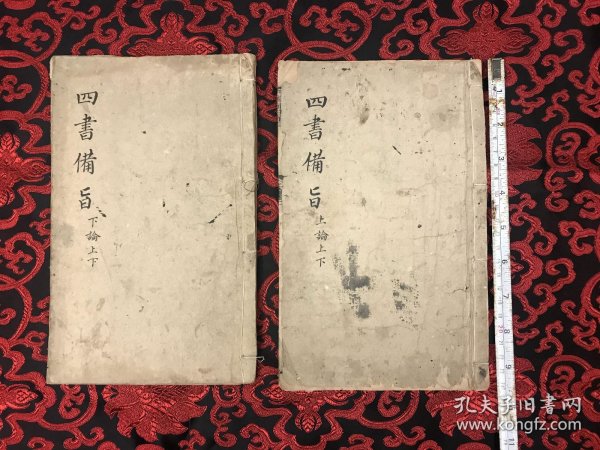 四書備旨
下論上下
四書備旨
上論上下
孔夫子旧書网
kongfz.com